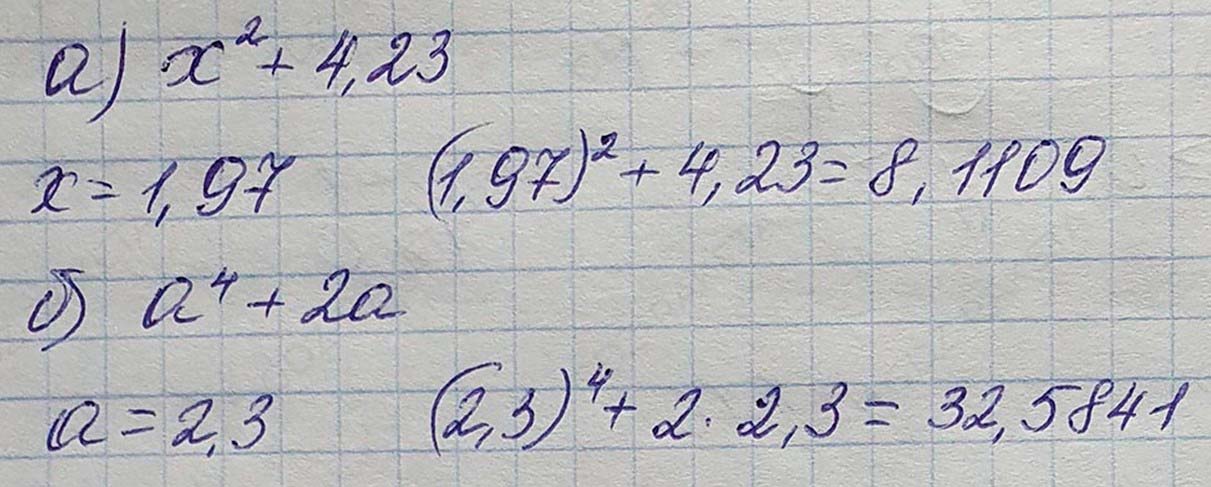 а) x² + 4,23
x = 1,97 (1,97)² + 4,23 = 8,1109
б) a⁴ + 2a
a = 2,3 (2,3)⁴ + 2 · 2,3 = 32,5841